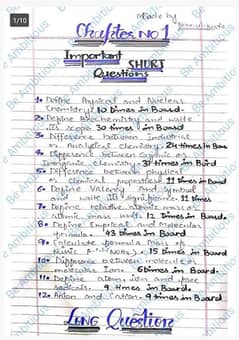 1/10
Made by
Chapter No 1
Important SHORT
Questions
1* Define Physical and Nuclear
Chemistry. 10 times in Board.
2* Define Biochemistry and write
its scope 30 times in Board
3* Difference between Industrial
or Analytical Chemistry. 24 times in Boa
4* Difference between Organic or
Inorganic Chemistry. 31 times in Bord
5* Difference between physical
or chemical properties? 11 times in Band
6* Define Valency And Symbol
and write its significance. 11 times
7* Define relative atomic mass or
atomic mass unit. 12 times in Board.
8* Define Empirical and Molecular
formula. 43 times in Board
9* Calculate formula Mass of
15 times in Board
10* Difference between molecule or
molecular Ion. 6 times in Board.
11* Define atom, ion and free
radicals. 9 times in Board.
12* Anion and Cation. 9 times in Board
LONG Question
Be Ambitious